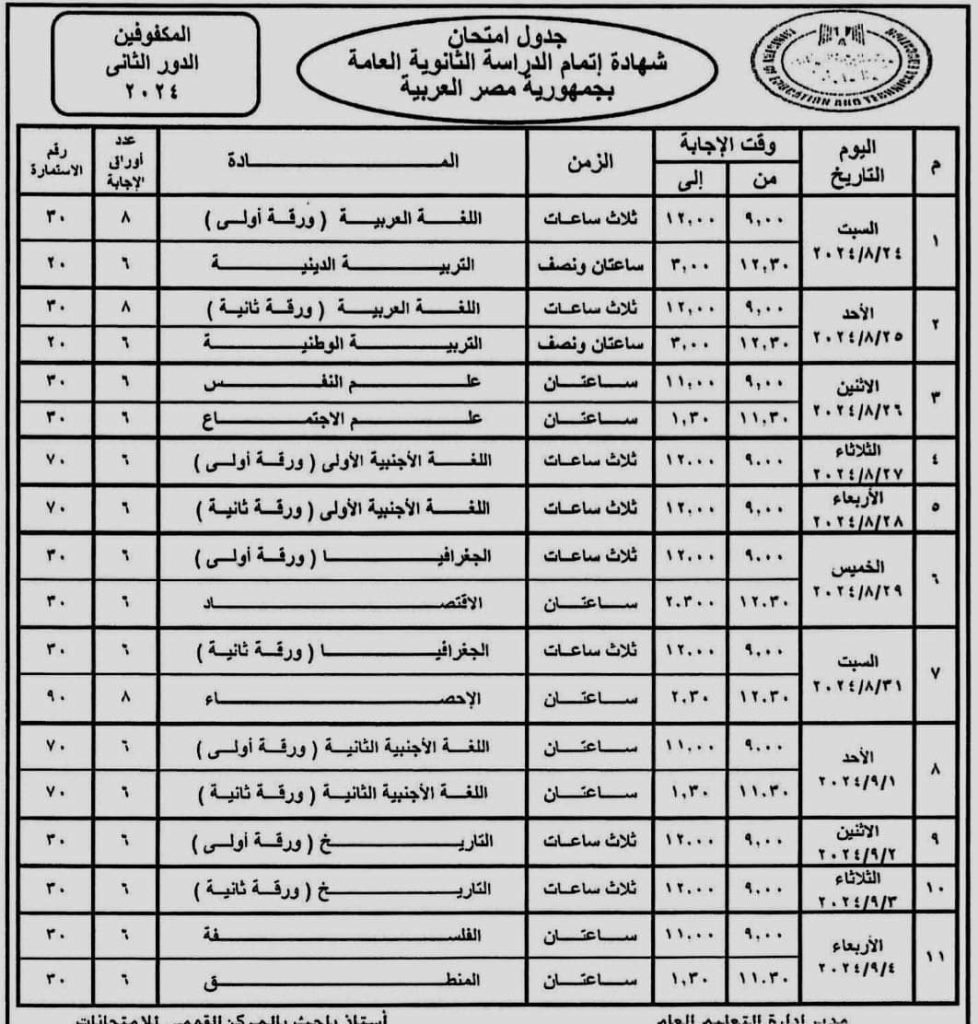 جدول امتحان
شهادة إتمام الدراسة الثانوية العامة
بجمهورية مصر العربية
المكفوفين
الدور الثانى
٢٠٢٤
EDUCATION AND TECHNICAL
م اليوم التاريخ وقت الإجابة من إلى الزمن المــادة عدد أوراق الإجابة رقم الاستمارة
١ السبت ٢٠٢٤/٨/٢٤ ٩,٠٠ ١٢,٠٠ ثلاث ساعات اللغة العربية ( ورقة أولى ) ٨ ٣٠
١٢,٣٠ ٣,٠٠ ساعتان ونصف التربية الدينية ٦ ٢٠
٢ الأحد ٢٠٢٤/٨/٢٥ ٩,٠٠ ١٢,٠٠ ثلاث ساعات اللغة العربية ( ورقة ثانية ) ٨ ٣٠
١٢,٣٠ ٣,٠٠ ساعتان ونصف التربية الوطنية ٦ ٢٠
٣ الاثنين ٢٠٢٤/٨/٢٦ ٩,٠٠ ١١,٠٠ ساعتان علم النفس ٦ ٣٠
١١,٣٠ ١,٣٠ ساعتان علم الاجتماع ٦ ٣٠
٤ الثلاثاء ٢٠٢٤/٨/٢٧ ٩,٠٠ ١٢,٠٠ ثلاث ساعات اللغة الأجنبية الأولى ( ورقة أولى ) ٦ ٧٠
٥ الأربعاء ٢٠٢٤/٨/٢٨ ٩,٠٠ ١٢,٠٠ ثلاث ساعات اللغة الأجنبية الأولى ( ورقة ثانية ) ٦ ٧٠
٦ الخميس ٢٠٢٤/٨/٢٩ ٩,٠٠ ١٢,٠٠ ثلاث ساعات الجغرافيا ( ورقة أولى ) ٦ ٣٠
١٢.٣٠ ٢.٣٠٠ ساعتان الاقتصاد ٦ ٣٠
٧ السبت ٢٠٢٤/٨/٣١ ٩,٠٠ ١٢,٠٠ ثلاث ساعات الجغرافيا ( ورقة ثانية ) ٦ ٣٠
١٢.٣٠ ٢.٣٠ ساعتان الإحصاء ٨ ٩٠
٨ الأحد ٢٠٢٤/٩/١ ٩,٠٠ ١١,٠٠ ساعتان اللغة الأجنبية الثانية ( ورقة أولى ) ٦ ٧٠
١١.٣٠ ١,٣٠ ساعتان اللغة الأجنبية الثانية ( ورقة ثانية ) ٦ ٧٠
٩ الاثنين ٢٠٢٤/٩/٢ ٩,٠٠ ١٢,٠٠ ثلاث ساعات التاريخ ( ورقة أولى ) ٦ ٣٠
١٠ الثلاثاء ٢٠٢٤/٩/٣ ٩,٠٠ ١٢,٠٠ ثلاث ساعات التاريخ ( ورقة ثانية ) ٦ ٣٠
١١ الأربعاء ٢٠٢٤/٩/٤ ٩,٠٠ ١١,٠٠ ساعتان الفلسفة ٦ ٣٠
١١.٣٠ ١,٣٠ ساعتان المنطق ٦ ٣٠
مدير إدارة التعليم العام أستاذ باحث بالمركز القومى للامتحانات